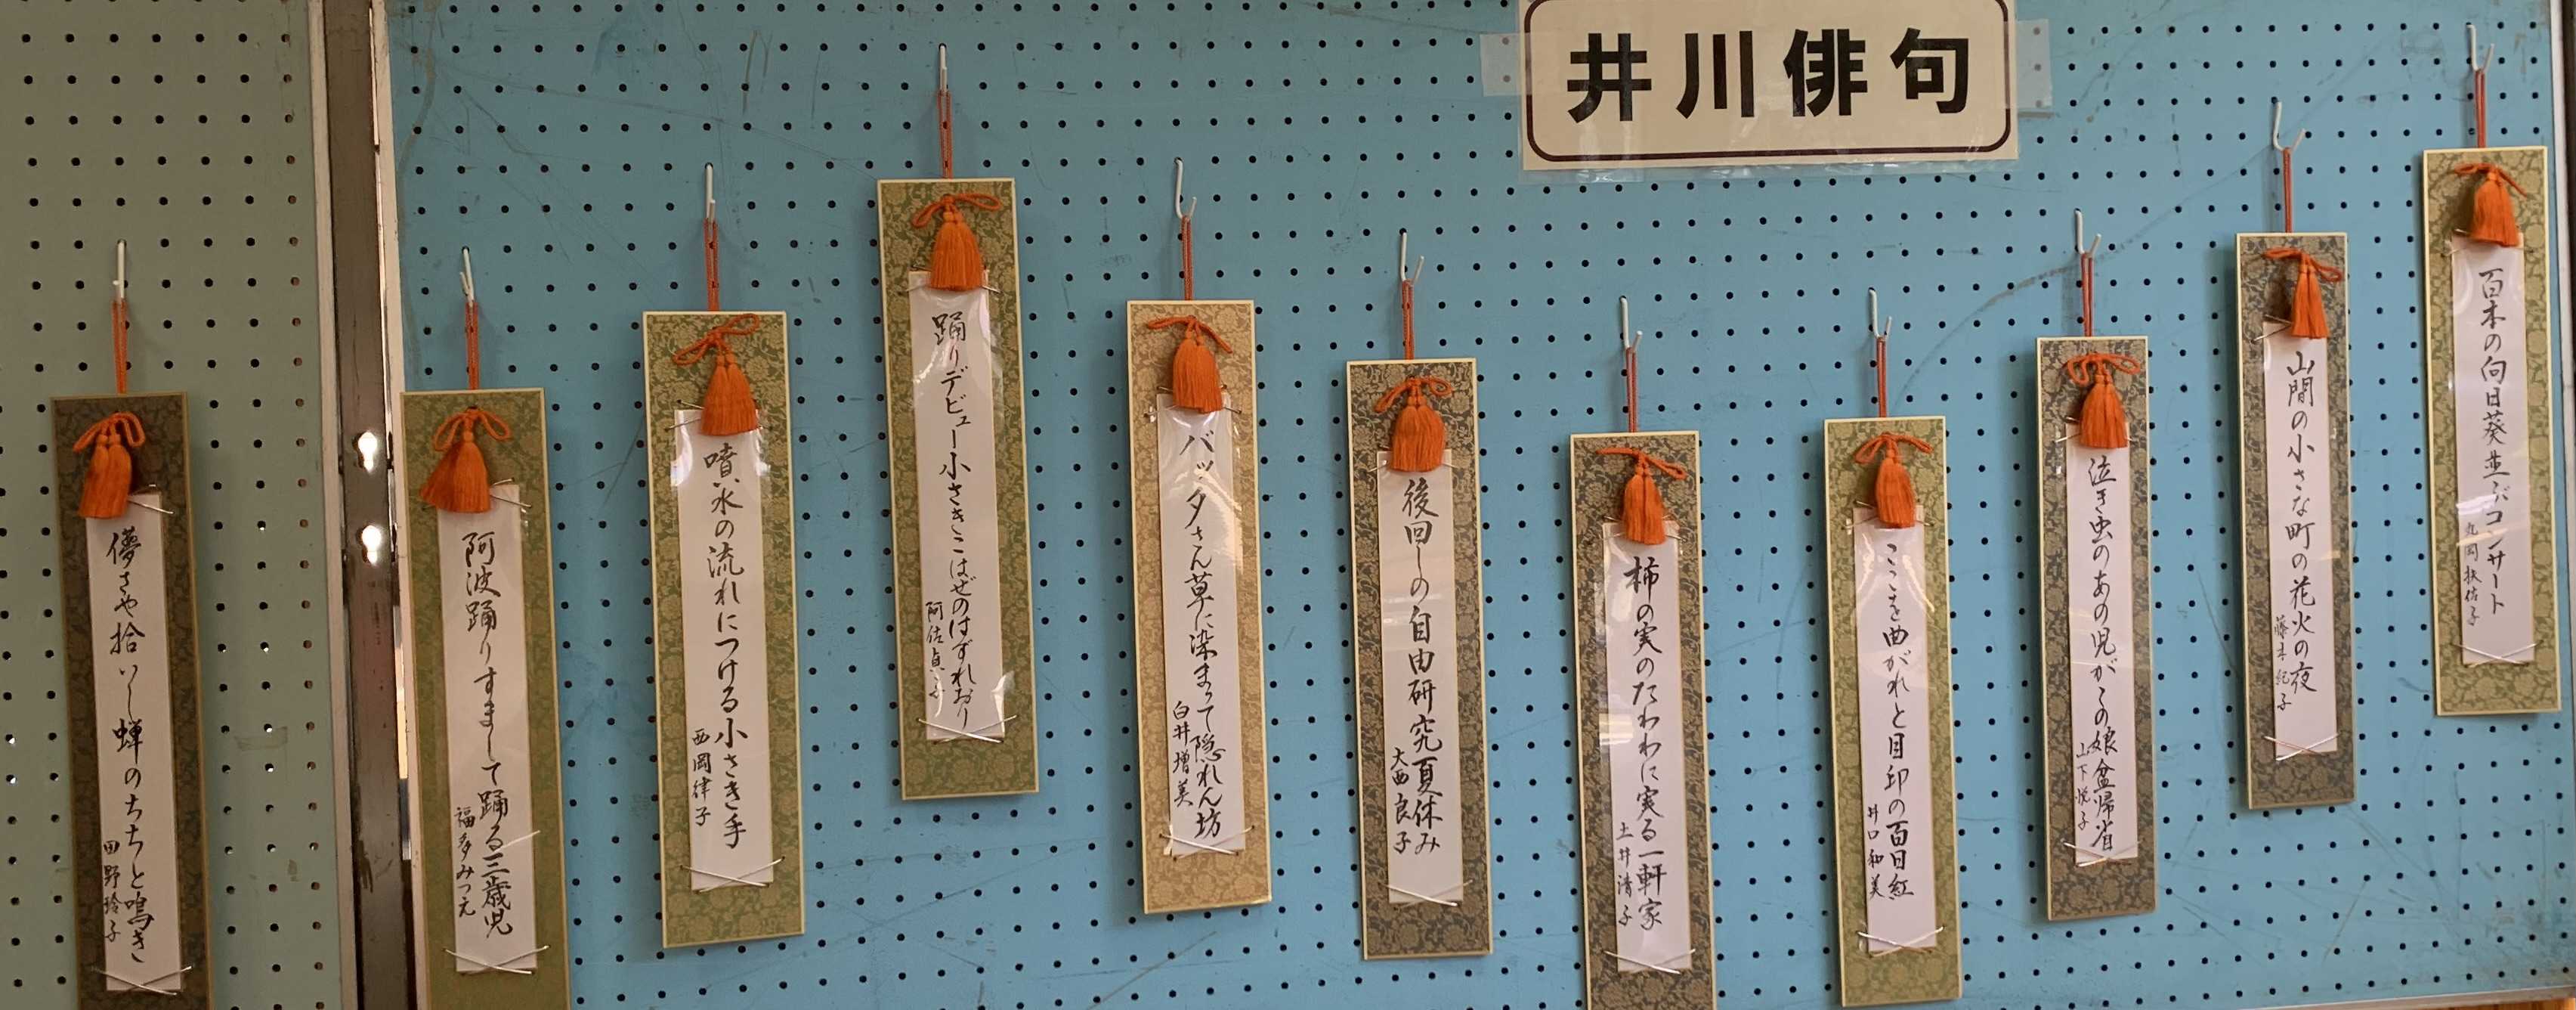 井川俳句
百本の向日葵並ぶコンサート
丸岡
山間の小さな町の花火の夜
藤本紀子
泣き虫のあの児がこの娘盆帰省
山下悦子
ここを曲がれと目印の百日紅
井口和美
柿の実のたわわに実る一軒家
土井清子
後回しの自由研究夏休み
大西良子
バッタさん草に染まって隠れん坊
白井増美
踊りデビュー小さきこはぜのはずれおり
阿佐貞子
噴水の流れにつける小さき手
西岡律子
阿波踊りすまして踊る三歳児
福多みつえ
儚さや拾いし蝉のちちと鳴き
田野玲子